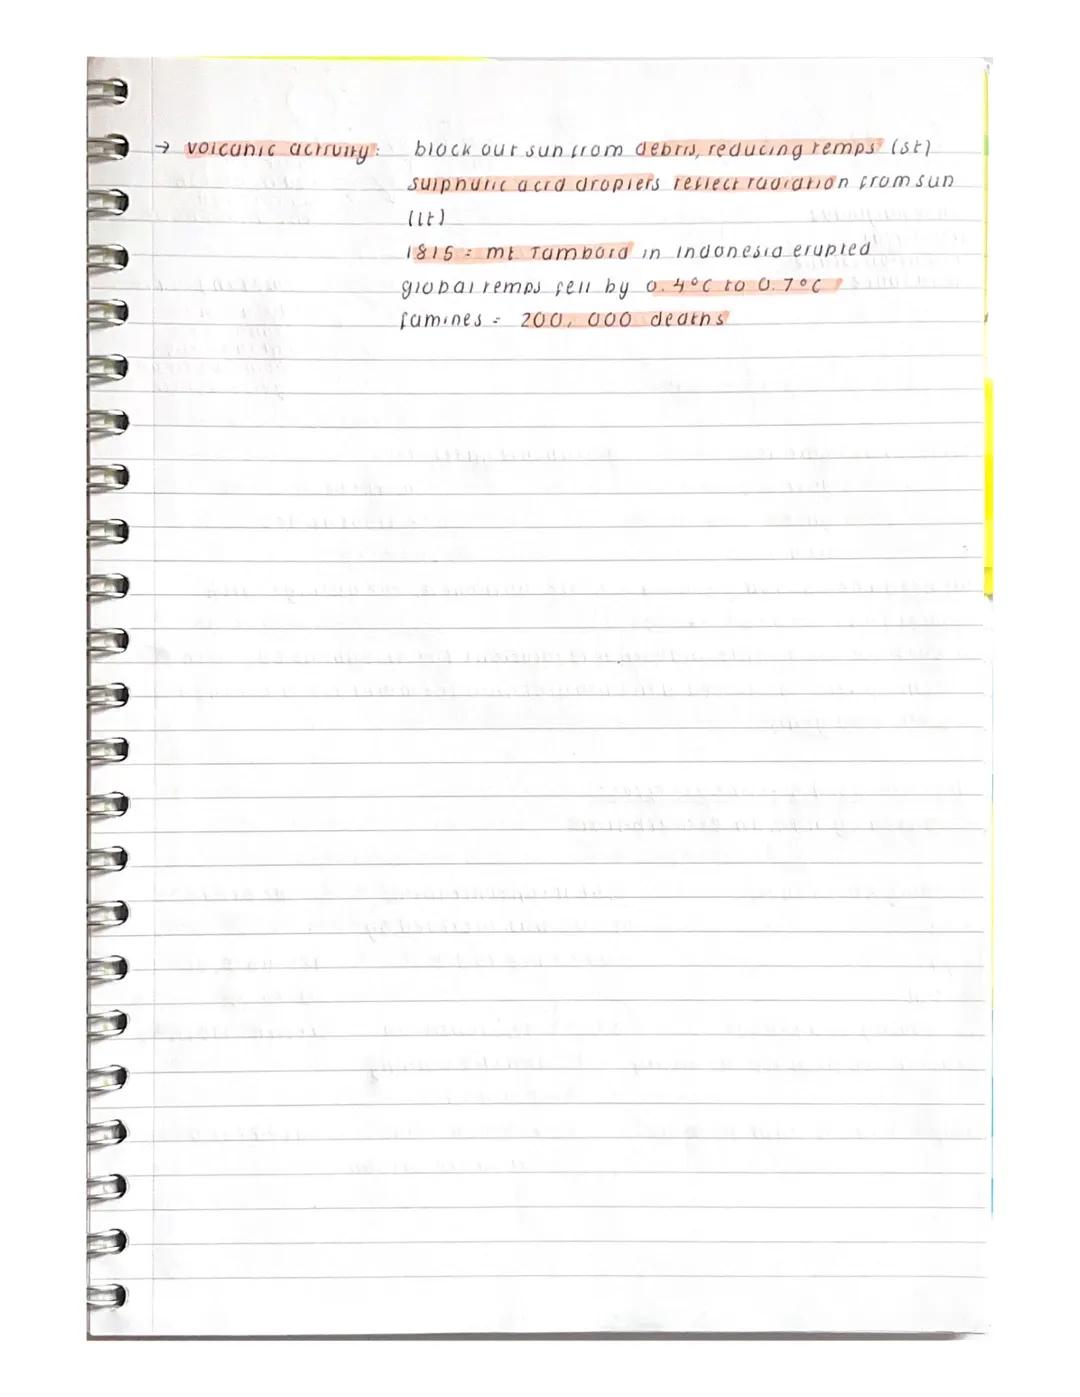 → volcanic activity: block out sun from debris, reducing temps (st)
sulphuric acid droplets reflect radiation from sun
(lt)
1815 = mt Tambora in indonesia erupted
global temps fell by 0.4°c to 0.7°c
famines = 200,000 deaths